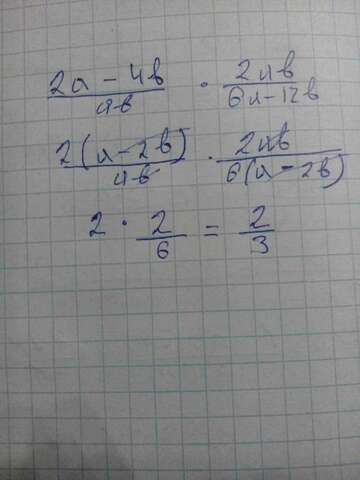 (2a - 4b)/(ab) · (2ab)/(6a - 12b)
(2(a - 2b))/(ab) · (2ab)/(6(a - 2b))
2 · 2/6 = 2/3